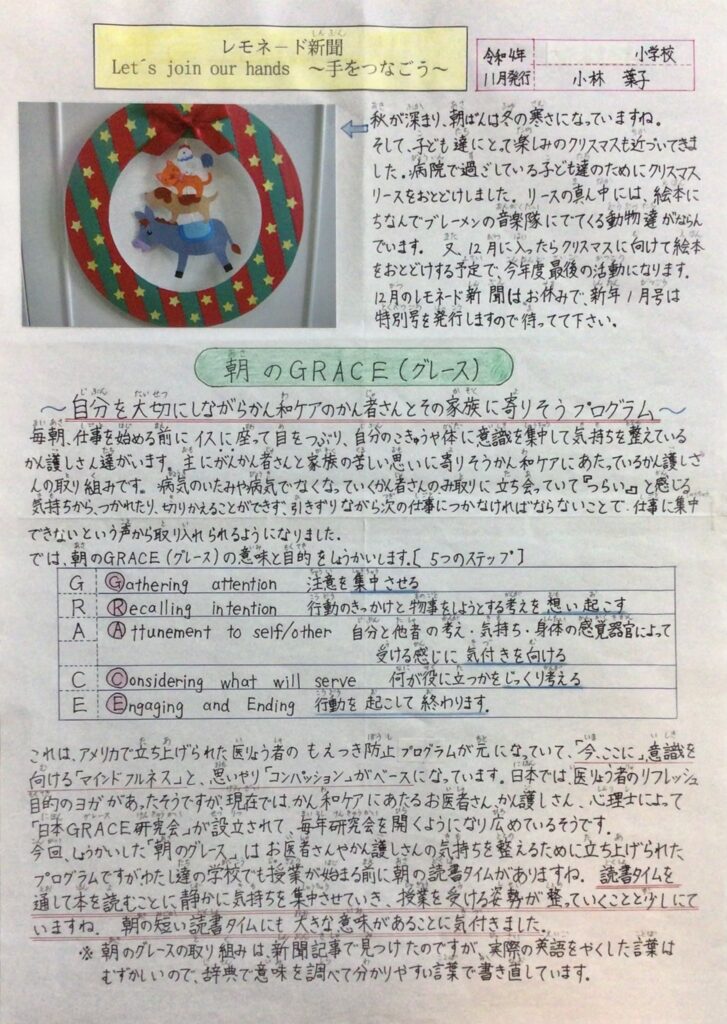 レモネード新聞
Let's join our hands ～手をつなごう～
令和4年 小学校
11月発行 小林 葉子
秋が深まり、朝ばんは冬の寒さになっていますね。
そして、子ども達にとって楽しみのクリスマスも近づいてきま
した。病院で過ごしている子ども達のためにクリスマス
リースをおとどけしました。リースの真ん中には、絵本に
ちなんでブレーメンの音楽隊にでてくる動物達がならん
でいます。又、12月に入ったらクリスマスに向けて絵本
をおとどけする予定で、今年度最後の活動になります。
12月のレモネード新聞はお休みで、新年1月号は
特別号を発行しますので待ってて下さい。
朝のGRACE(グレース)
～自分を大切にしながらかん和ケアのかん者さんとその家族に寄りそうプログラム～
毎朝、仕事を始める前にイスに座って目をつぶり、自分のこきゅうや体に意識を集中して気持ちを整えている
かん護しさん達がいます。主にがんかん者さんと家族の苦しい思いに寄りそうかん和ケアにあたっているかん護しさ
んの取り組みです。病気のいたみや病気でなくなっていくかん者さんのみ取りに立ち会っていて『つらい』と感じる
気持ちから、つかれたり、切りかえることができず、引きずりながら次の仕事につかなければならないことで、仕事に集中
できないという声から取り入れられるようになりました。
では、朝のGRACE(グレース)の意味と目的をしょうかいします。[5つのステップ]
G Gathering attention 注意を集中させる
R Recalling intention 行動のきっかけと物事をしようとする考えを想い起こす
A Attunement to self/other 自分と他者の考え・気持ち・身体の感覚器官によって
受ける感じに気付きを向ける
C Considering what will serve 何が役に立つかをじっくり考える
E Engaging and Ending 行動を起こして終わります。
これは、アメリカで立ち上げられた医りょう者のもえつき防止プログラムが元になっていて、「今、ここに」意識を
向ける「マインドフルネス」と、思いやり「コンパッション」がベースになっています。日本では、医りょう者のリフレッシュ
目的のヨガがあったそうですが、現在では、かん和ケアにあたるお医者さん、かん護しさん、心理士によって
「日本GRACE研究会」が設立されて、毎年研究会を開くようになり広めているそうです。
今回、しょうかいした「朝のグレース」はお医者さんやかん護しさんの気持ちを整えるために立ち上げられた
プログラムですがわたし達の学校でも授業が始まる前に朝の読書タイムがありますね。読書タイムを
通して本を読むことに静かに気持ちを集中させていき、授業を受ける姿勢が整っていくことと少しにて
いますね。朝の短い読書タイムにも大きな意味があることに気付きました。
※朝のグレースの取り組みは、新聞記事で見つけたのですが、実際の英語をやくした言葉は
むずかしいので、辞典で意味を調べて分かりやすい言葉で書き直しています。